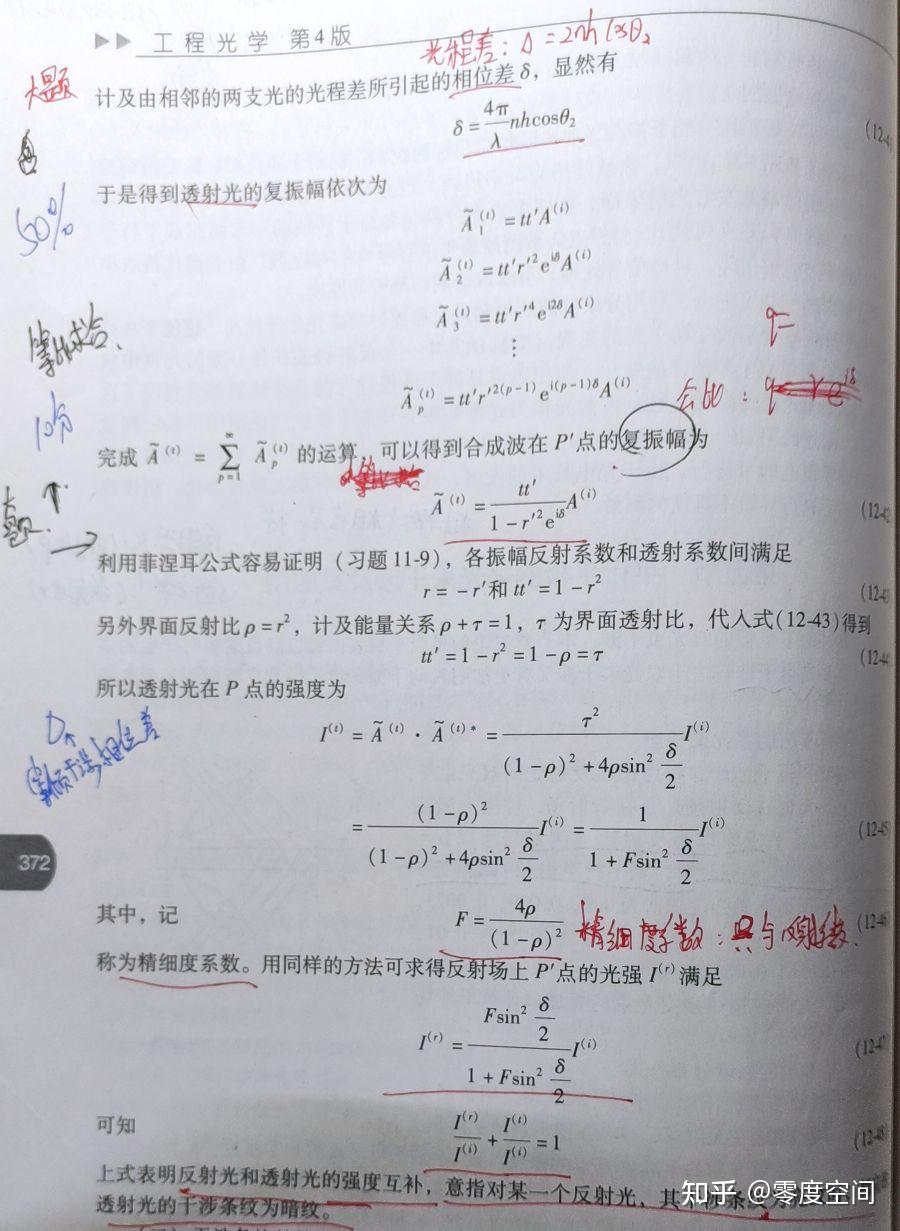 ▶▶ 工程光学 第4版
光程差：Δ=2nh cosθ₂
大题
计及由相邻的两支光的光程差所引起的相位差 δ，显然有
δ = \frac{4π}{λ}nhcosθ₂
(12-4
于是得到透射光的复振幅依次为
50%
Ã₁^{(t)} = tt′A^{(i)}
Ã₂^{(t)} = tt′r′²e^{iδ}A^{(i)}
Ã₃^{(t)} = tt′r′⁴e^{i2δ}A^{(i)}
⋮
q=
等比求合、
Ã_p^{(t)} = tt′r′^{2(p-1)}e^{i(p-1)δ}A^{(i)}
公比：q
10分
完成 Ã^{(t)} = \sum_{p=1}^{∞} Ã_p^{(t)} 的运算，可以得到合成波在 P′点的复振幅为
Ã^{(t)} = \frac{tt′}{1-r′²e^{iδ}}A^{(i)}
(12-4
利用菲涅耳公式容易证明（习题 11-9），各振幅反射系数和透射系数间满足
r = -r′和 tt′ = 1 - r²
(12-4
另外界面反射比 ρ = r²，计及能量关系 ρ + τ = 1，τ 为界面透射比，代入式(12-43)得到
tt′ = 1 - r² = 1 - ρ = τ
(12-44
所以透射光在 P 点的强度为
I^{(t)} = Ã^{(t)} · Ã^{(t)*} = \frac{τ²}{(1-ρ)² + 4ρsin²\frac{δ}{2}}I^{(i)}
= \frac{(1-ρ)²}{(1-ρ)² + 4ρsin²\frac{δ}{2}}I^{(i)} = \frac{1}{1 + Fsin²\frac{δ}{2}}I^{(i)}
(12-45
372
其中，记
F = \frac{4ρ}{(1-ρ)²}
精细度系数：只与
(12-46
称为精细度系数。用同样的方法可求得反射场上 P′点的光强 I^{(r)} 满足
I^{(r)} = \frac{Fsin²\frac{δ}{2}}{1 + Fsin²\frac{δ}{2}}I^{(i)}
(12-47
可知
\frac{I^{(r)}}{I^{(i)}} + \frac{I^{(t)}}{I^{(i)}} = 1
(12-48
上式表明反射光和透射光的强度互补，意指对某一个反射光，其干涉条纹为
透射光的干涉条纹为暗纹。
知乎 @零度空间